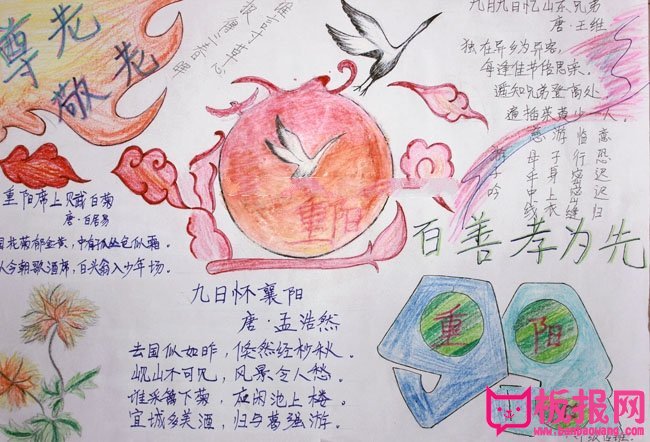 尊老
敬老
九月九日忆山东兄弟
唐·王维
独在异乡为异客,
每逢佳节倍思亲。
遥知兄弟登高处
遍插茱萸少一人。
游子吟
慈母手中线
游子身上衣
临行密密缝
意恐迟迟归
重阳席上赋白菊
唐·白居易
园花菊郁金黄,中有孤丛色似霜。
从今朝歌酒席,白头翁入少年场。
重阳
百善孝为先
九日怀襄阳
唐·孟浩然
去国似如昨,倏然经杪秋。
岘山不可见,风景令人愁。
谁采篱下菊,应闲池上楼。
宜城多美酒,归与葛强游。
重
阳
板报网
www.banbaowang.com